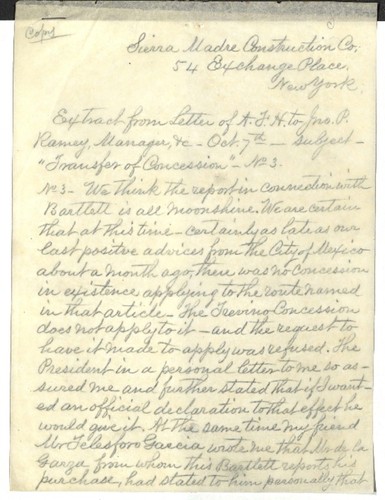 Copy
Sierra Madre Construction Co.
54 Exchange Place.
New York.
Extract from Letter of A. F. H. to Jno. P.
Ramey, Manager, &c - Oct. 7th - Subject -
"Transfer of Concession" - No 3.
No 3 - We think the report in connection with
Bartlett is all moonshine. We are certain
that at this time - certainly as late as our
last positive advices from the City of Mexico
about a month ago, there was no Concession
in existence applying to the route named
in that article - The Trevino Concession
does not apply to it - and the request to
have it made to apply was refused. The
President in a personal letter to me so as-
sured me and further stated that if I want-
ed an official declaration to that effect he
would give it. At the same time my friend
Mr Telesforo Garcia wrote me that Mr de la
Garza, from whom this Bartlett reports his
purchase, had stated to him personally that